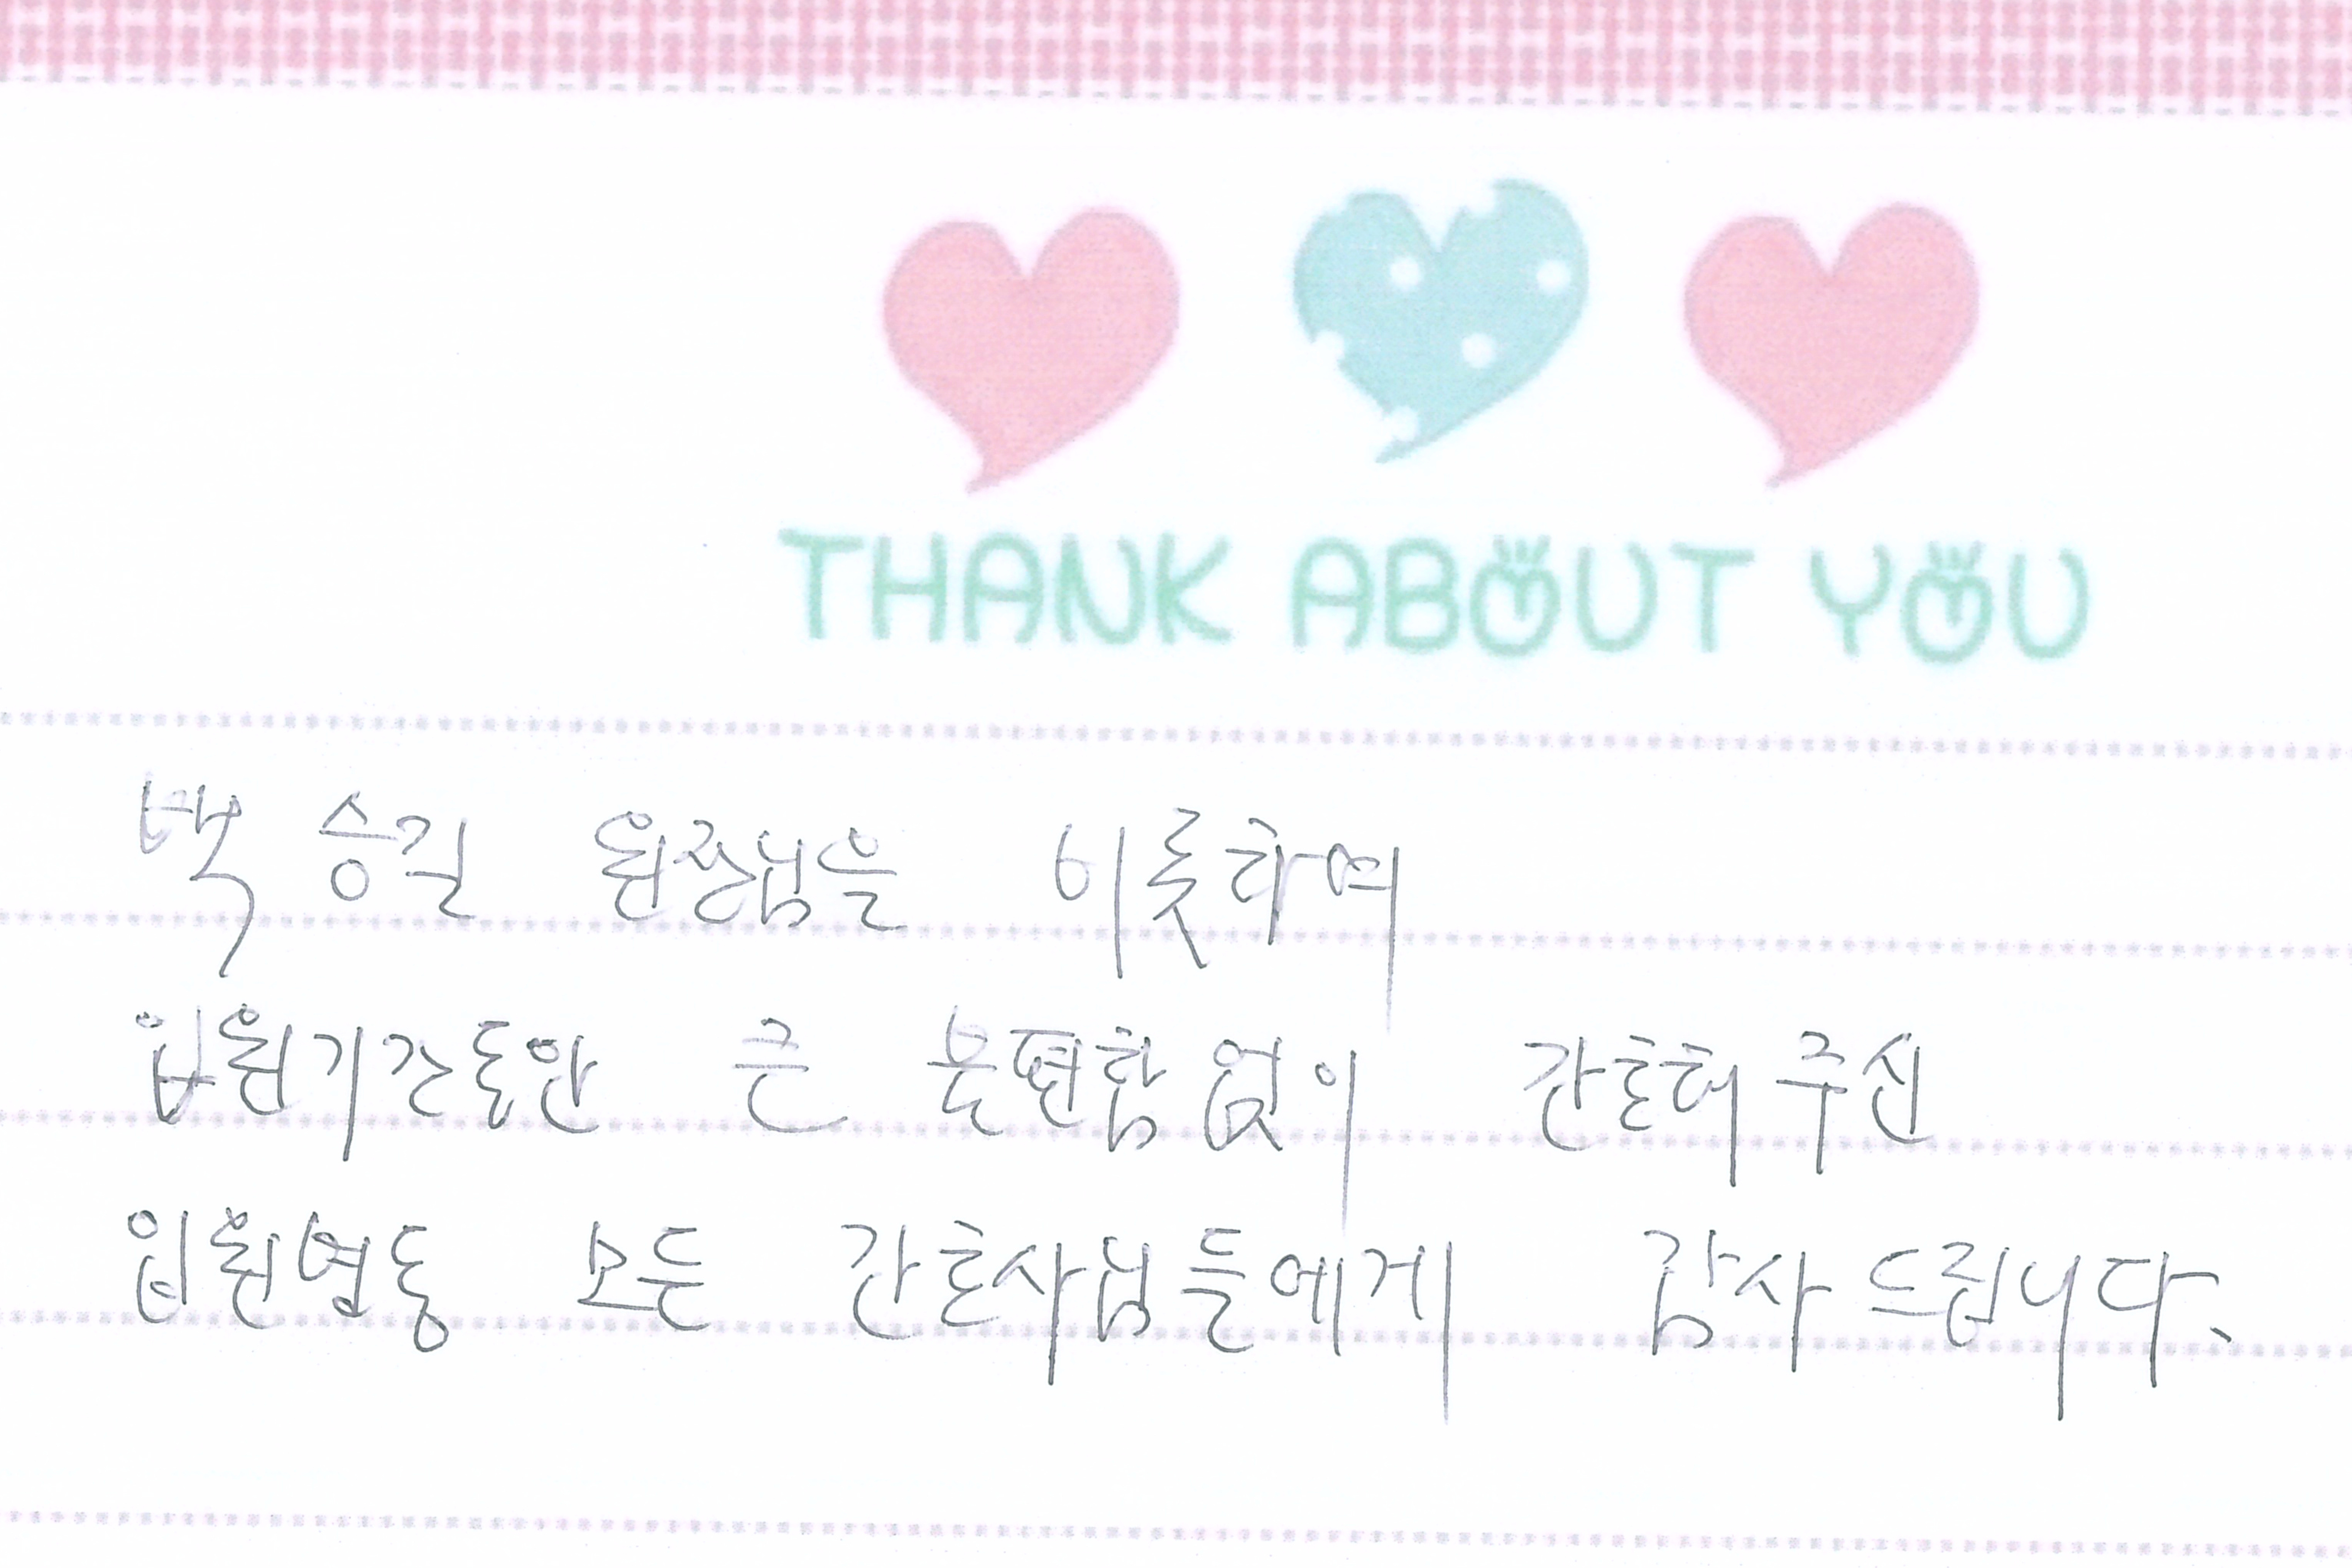 THANK ABOUT YOU
백승길 원장님을 비롯하여
입원기간동안 큰 불편함없이 간호해 주신
입원병동 모든 간호사님들에게 감사 드립니다.